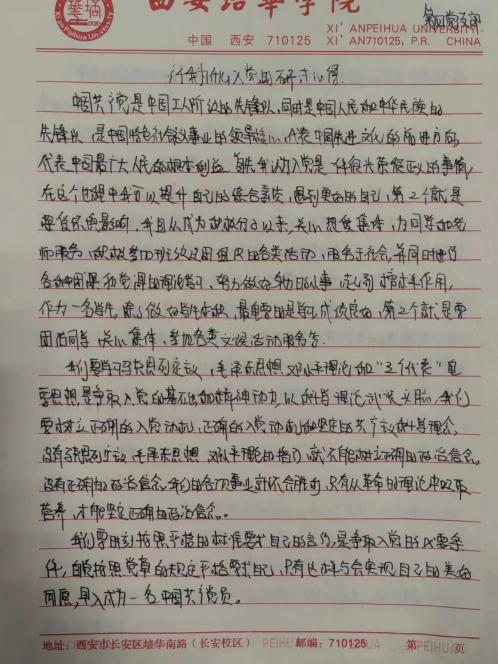 西安培华学院
Xi'an Peihua University
XI'ANPEIHUA UNIVERSITY
中国 西安 710125 XI'AN710125, P.R. CHINA
第四党支部
行动为什么入党的研讨心得
中国共产党是中国工人阶级的先锋队，同时是中国人民和中华民族的
先锋队，是中国特色社会主义事业的领导核心，代表中国先进文化的前进方向，
代表中国最广大人民的根本利益。首先我认为入党是一件很光荣很正义的事情，
在这个过程中我可以提升自己的综合素质，遇到更好的自己，第2个就是
要受环境影响，我自从成为积极分子以来，关心热爱集体，为同学和老
师服务，积极参加学校及团组织的各类活动，服务于社会，并同时进行
各种团课和党课的理论学习，努力做好身边的小事，起到榜样作用，
作为一名学生，除了做好学生本职，最重要的是学习成绩良好，第2个就是要
团结同学，关心集体，参加各类文娱活动服务等。
我们要学习马克思列宁主义，毛泽东思想，邓小平理论和"三个代表"重
要思想是争取入党的基石也和精神动力，以科学理论武装头脑，我们
要树立正确的入党动机，正确的入党动机和坚定的共产主义科学理念，
没有马克思列宁主义，毛泽东思想，邓小平理论的指引，就不能树立正确的政治信念，
没有正确的政治信念，我们的各项事业就不会胜利，只有从革命的理论中吸取
营养，才能坚定正确的政治信念。
我们要时刻按照严格的标准要求自己的言行，是争取入党的必要条
件，自觉按照党章的规定严格要求自己，只有这样才会实现自己的美好
的愿，早入成为一名中国共产党员。
地址：西安市长安区培华南路（长安校区） 邮编：710125 第 页